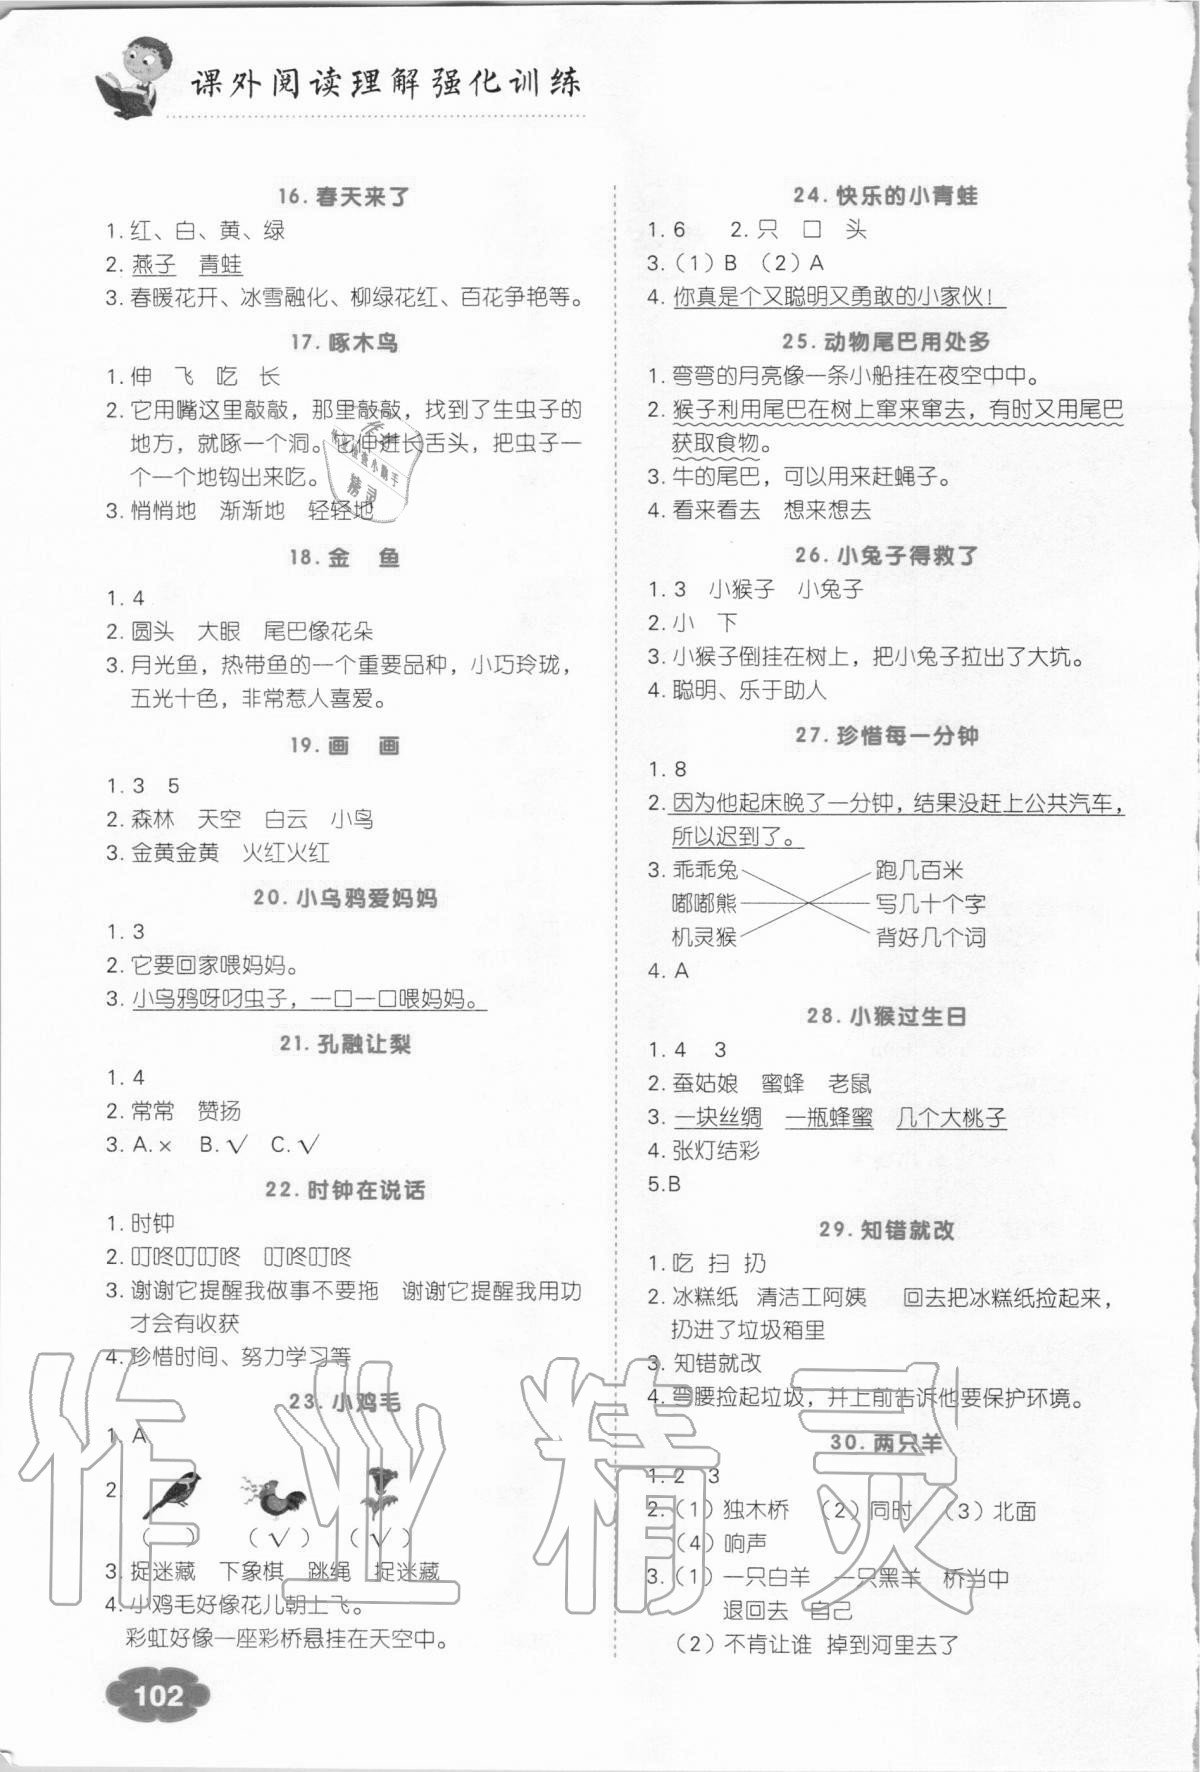 课外阅读理解强化训练
16. 春天来了
1. 红、白、黄、绿
2. 燕子 青蛙
3. 春暖花开、冰雪融化、柳绿花红、百花争艳等。
17. 啄木鸟
1. 伸 飞 吃 长
2. 它用嘴这里敲敲，那里敲敲，找到了生虫子的
地方，就啄一个洞。它伸进长舌头，把虫子一
个一个地钩出来吃。
3. 悄悄地 渐渐地 轻轻地
18. 金 鱼
1. 4
2. 圆头 大眼 尾巴像花朵
3. 月光鱼，热带鱼的一个重要品种，小巧玲珑，
五光十色，非常惹人喜爱。
19. 画 画
1. 3 5
2. 森林 天空 白云 小鸟
3. 金黄金黄 火红火红
20. 小乌鸦爱妈妈
1. 3
2. 它要回家喂妈妈。
3. 小乌鸦呀叼虫子，一口一口喂妈妈。
21. 孔融让梨
1. 4
2. 常常 赞扬
3. A. × B. √ C. √
22. 时钟在说话
1. 时钟
2. 叮咚叮叮咚 叮咚叮咚
3. 谢谢它提醒我做事不要拖 谢谢它提醒我用功
才会有收获
4. 珍惜时间、努力学习等
23. 小鸡毛
1 A
2.
（ ） （√） （√）
3. 捉迷藏 下象棋 跳绳 捉迷藏
4. 小鸡毛好像花儿朝上飞。
彩虹好像一座彩桥悬挂在天空中。
102
24. 快乐的小青蛙
1. 6 2. 只 口 头
3.（1）B （2）A
4. 你真是个又聪明又勇敢的小家伙！
25. 动物尾巴用处多
1. 弯弯的月亮像一条小船挂在夜空中中。
2. 猴子利用尾巴在树上窜来窜去，有时又用尾巴
获取食物。
3. 牛的尾巴，可以用来赶蝇子。
4. 看来看去 想来想去
26. 小兔子得救了
1. 3 小猴子 小兔子
2. 小 下
3. 小猴子倒挂在树上，把小兔子拉出了大坑。
4. 聪明、乐于助人
27. 珍惜每一分钟
1. 8
2. 因为他起床晚了一分钟，结果没赶上公共汽车，
所以迟到了。
3. 乖乖兔 跑几百米
嘟嘟熊 写几十个字
机灵猴 背好几个词
4. A
28. 小猴过生日
1. 4 3
2. 蚕姑娘 蜜蜂 老鼠
3. 一块丝绸 一瓶蜂蜜 几个大桃子
4. 张灯结彩
5. B
29. 知错就改
1. 吃 扫 扔
2. 冰糕纸 清洁工阿姨 回去把冰糕纸捡起来，
扔进了垃圾箱里
3. 知错就改
4. 弯腰捡起垃圾，并上前告诉他要保护环境。
30. 两只羊
1. 2 3
2.（1）独木桥 （2）同时 （3）北面
（4）响声
3.（1）一只白羊 一只黑羊 桥当中
退回去 自己
（2）不肯让谁 掉到河里去了
作业精灵